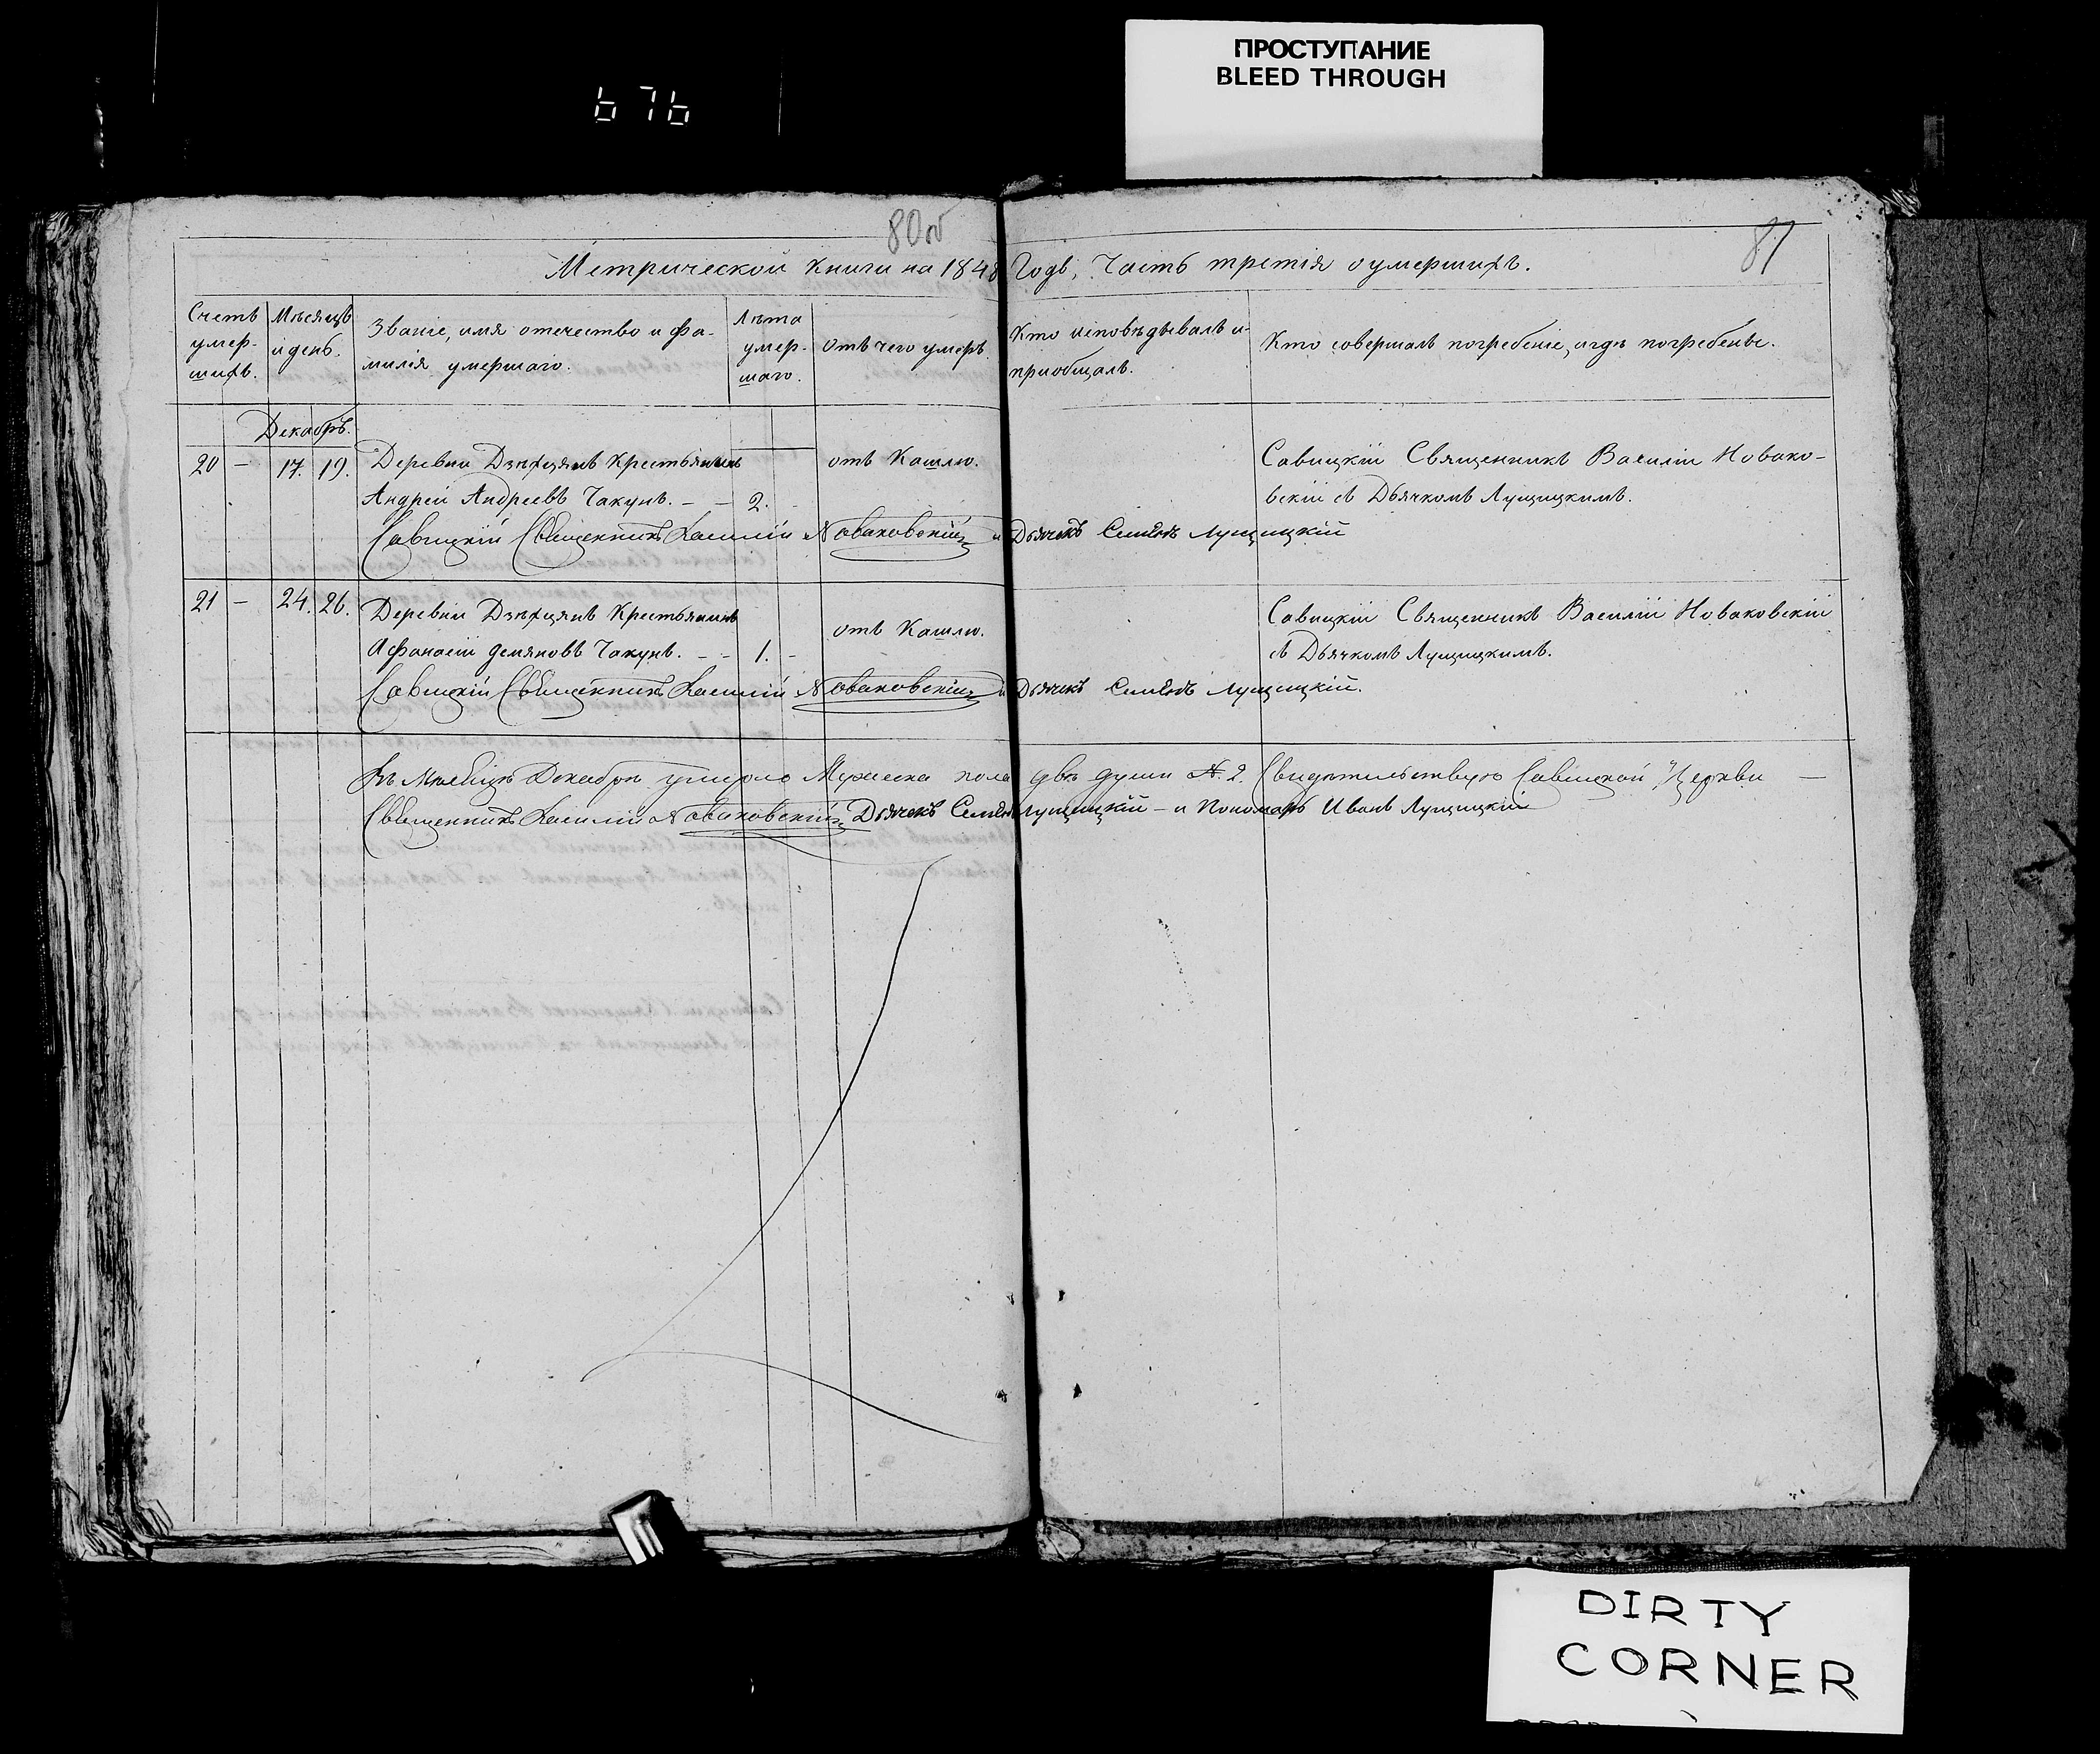 ПРОСТУПАНИЕ
BLEED THROUGH
676
80об
81
Метрической книги на 1848 Годъ, Часть третія о умершихъ.
Счетъ умер-шихъ.
Мѣсяцъ и день.
Званіе, имя отечество и фа-
милія умершаго.
Лѣта умер-шаго.
Отъ чего умеръ
Кто исповѣдывалъ и
приобщалъ.
Кто совершалъ погребеніе, и гдѣ погребены.
Декабрь.
20 – 17. 19. Деревни Крестьянинъ отъ Кашлю. Савицкій Священникъ Василій Новако-
Андрей Андреевъ Чакунъ. – – 2. вскій съ Дьячкомъ Лущицкимъ.
Савицкій Священникъ Василій Новаковскій и Дьячекъ Семенъ Лущицкій
21 – 24. 26. Деревни Крестьянинъ отъ Кашлю. Савицкій Священникъ Василій Новаковскій
Афанасій Демяновъ Чакунъ. – – 1. – съ Дьячкомъ Лущицкимъ.
Савицкій Священникъ Василій Новаковскій и Дьячекъ Семенъ Лущицкій.
Въ Мѣсяцѣ Декабрѣ умерло Мужеска пола двѣ души N. 2. Свидѣтельствую Савицкой Церкви –
Священникъ Василій Новаковскій Дьячекъ Семенъ Лущицкій – и Пономарь Иванъ Лущицкій
DIRTY
CORNER